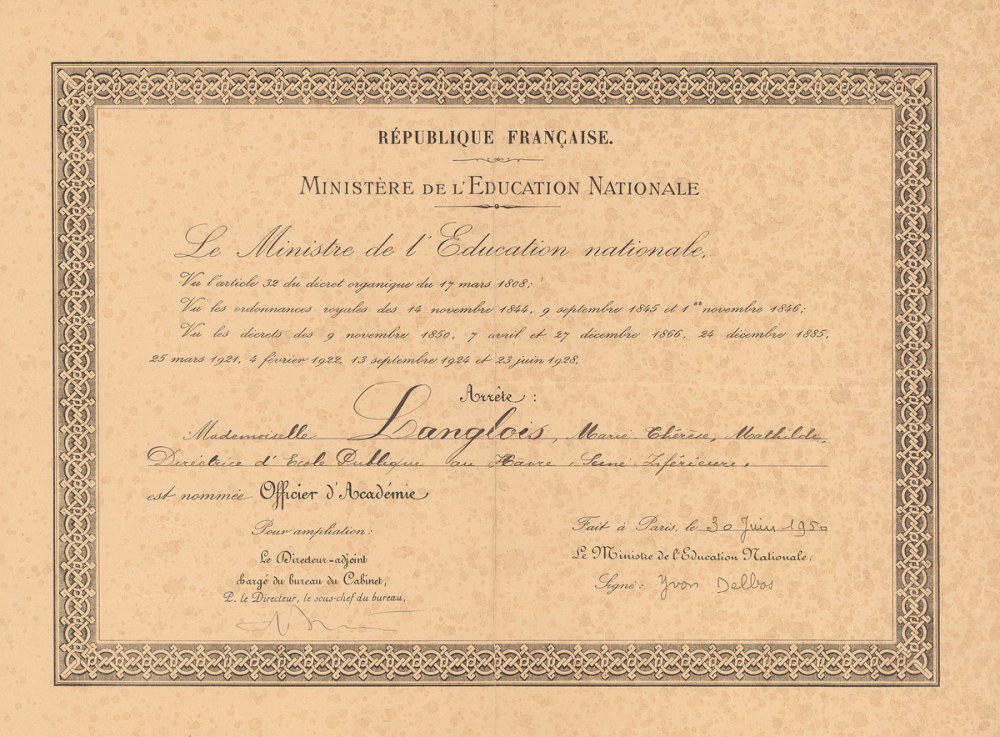 RÉPUBLIQUE FRANÇAISE.
MINISTÈRE DE L'EDUCATION NATIONALE
Le Ministre de l'Education nationale,
Vu l'article 32 du décret organique du 17 mars 1808;
Vu les ordonnances royales des 14 novembre 1844, 9 septembre 1845 et 1er novembre 1846;
Vu les décrets des 9 novembre 1850, 7 avril et 27 décembre 1866, 24 décembre 1885,
25 mars 1921, 4 février 1922, 13 septembre 1924 et 23 juin 1928,
Arrête :
Mademoiselle Langlois, Marie Thérèse, Mathilde,
Directrice d'Ecole Publique au Hâvre (Seine Iférieure),
est nommée Officier d'Académie
Pour ampliation :
Fait à Paris, le 30 Juin 1950
Le Directeur-adjoint
Le Ministre de l'Education Nationale,
chargé du bureau du Cabinet,
Signé : Yvon Delbos
P. le Directeur, le sous-chef du bureau,